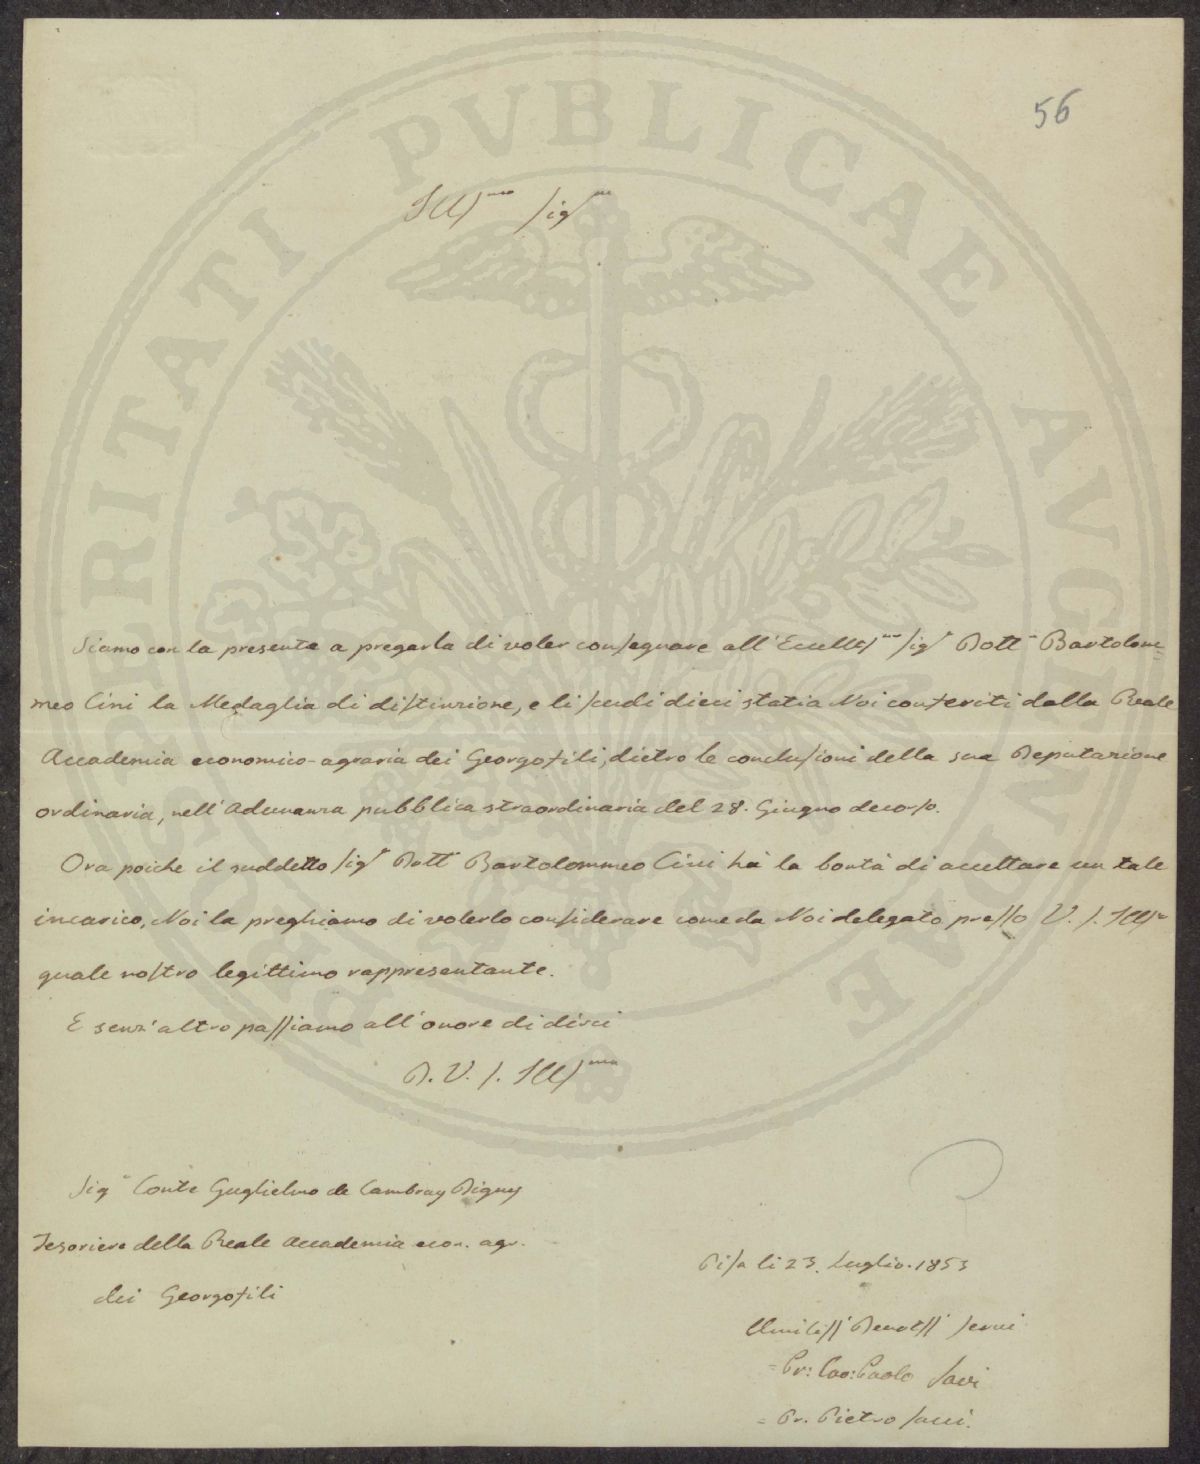 56
Ill.mo Sig.re
Siamo con la presente a pregarla di voler consegnare all'Eccell.mo Sig.r Dott.e Bartolom=
meo Cini la Medaglia di distinzione, e li scudi dieci stati a Noi conferiti dalla Reale
Accademia economico-agraria dei Georgofili, dietro le conclusioni della sua Deputazione
ordinaria, nell'Adunanza pubblica straordinaria del 28. Giugno decorso.
Ora poiche il suddetto Sig.r Dott. Bartolommeo Cini hà la bontà di accettare un tale
incarico, Noi la preghiamo di volerlo considerare come da Noi delegato presso V. S. Ill.ma
quale nostro legittimo rappresentante.
E senz'altro passiamo all'onore di dirci
D. V. S. Ill.ma
Sig.r Conte Guglielmo de Cambray Digny
Tesoriere della Reale Accademia econ. agr.
dei Georgofili
Pisa li 23. Luglio. 1853
Umiliss.i Devotss.i Servi
= Pr: Cav: Paolo Savi
= Pr. Pietro Savi.
PROSPERITATI PVBLICAE AVGENDAE